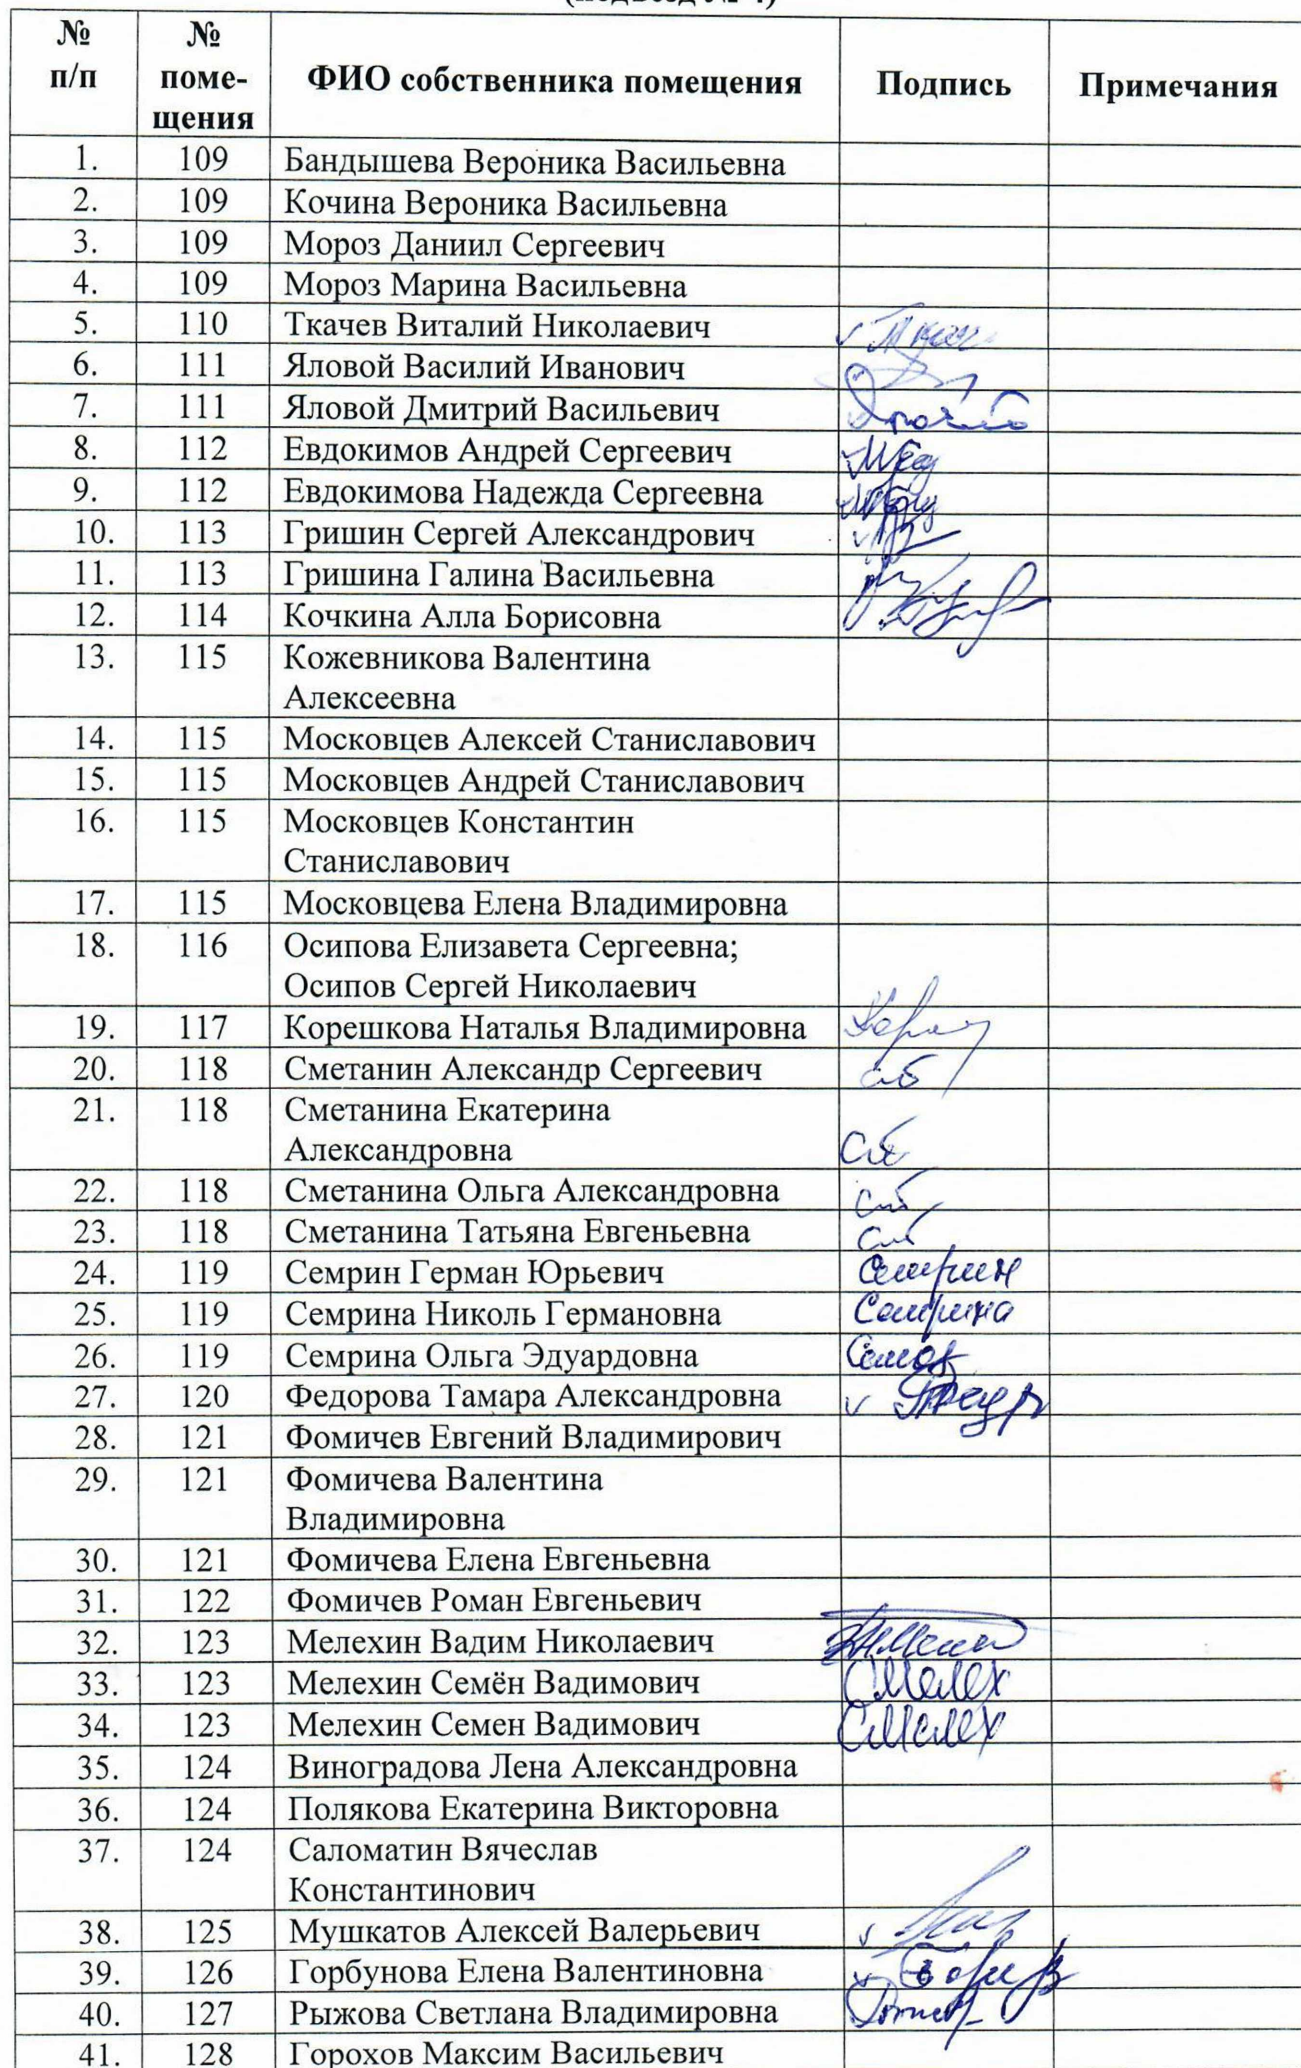 (подъезд № 4)
№ п/п № поме-щения ФИО собственника помещения Подпись Примечания
1. 109 Бандышева Вероника Васильевна
2. 109 Кочина Вероника Васильевна
3. 109 Мороз Даниил Сергеевич
4. 109 Мороз Марина Васильевна
5. 110 Ткачев Виталий Николаевич
6. 111 Яловой Василий Иванович
7. 111 Яловой Дмитрий Васильевич
8. 112 Евдокимов Андрей Сергеевич
9. 112 Евдокимова Надежда Сергеевна
10. 113 Гришин Сергей Александрович
11. 113 Гришина Галина Васильевна
12. 114 Кочкина Алла Борисовна
13. 115 Кожевникова Валентина
Алексеевна
14. 115 Московцев Алексей Станиславович
15. 115 Московцев Андрей Станиславович
16. 115 Московцев Константин
Станиславович
17. 115 Московцева Елена Владимировна
18. 116 Осипова Елизавета Сергеевна;
Осипов Сергей Николаевич
19. 117 Корешкова Наталья Владимировна
20. 118 Сметанин Александр Сергеевич
21. 118 Сметанина Екатерина
Александровна
22. 118 Сметанина Ольга Александровна
23. 118 Сметанина Татьяна Евгеньевна
24. 119 Семрин Герман Юрьевич Семрин
25. 119 Семрина Николь Германовна Семрина
26. 119 Семрина Ольга Эдуардовна
27. 120 Федорова Тамара Александровна
28. 121 Фомичев Евгений Владимирович
29. 121 Фомичева Валентина
Владимировна
30. 121 Фомичева Елена Евгеньевна
31. 122 Фомичев Роман Евгеньевич
32. 123 Мелехин Вадим Николаевич
33. 123 Мелехин Семён Вадимович СМелех
34. 123 Мелехин Семен Вадимович СМелех
35. 124 Виноградова Лена Александровна
36. 124 Полякова Екатерина Викторовна
37. 124 Саломатин Вячеслав
Константинович
38. 125 Мушкатов Алексей Валерьевич
39. 126 Горбунова Елена Валентиновна
40. 127 Рыжова Светлана Владимировна
41. 128 Горохов Максим Васильевич